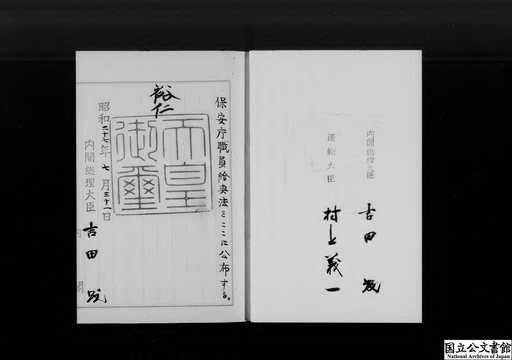 内閣総理大臣 吉田茂
運輸大臣 村上義一
保安庁職員給与法をここに公布する。
裕仁
天皇御璽
昭和二十七年七月三十一日
内閣総理大臣 吉田茂
国立公文書館
National Archives of Japan